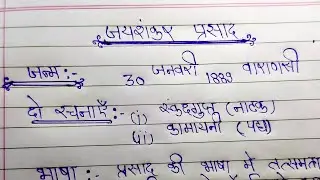 जयशंकर प्रसाद
जन्म :- 30 जनवरी 1889 वाराणसी
दो रचनाएँ :- (i) स्कंदगुप्त (नाटक)
(ii) कामायनी (पद्य)
भाषा :- प्रसाद की भाषा में तत्समता